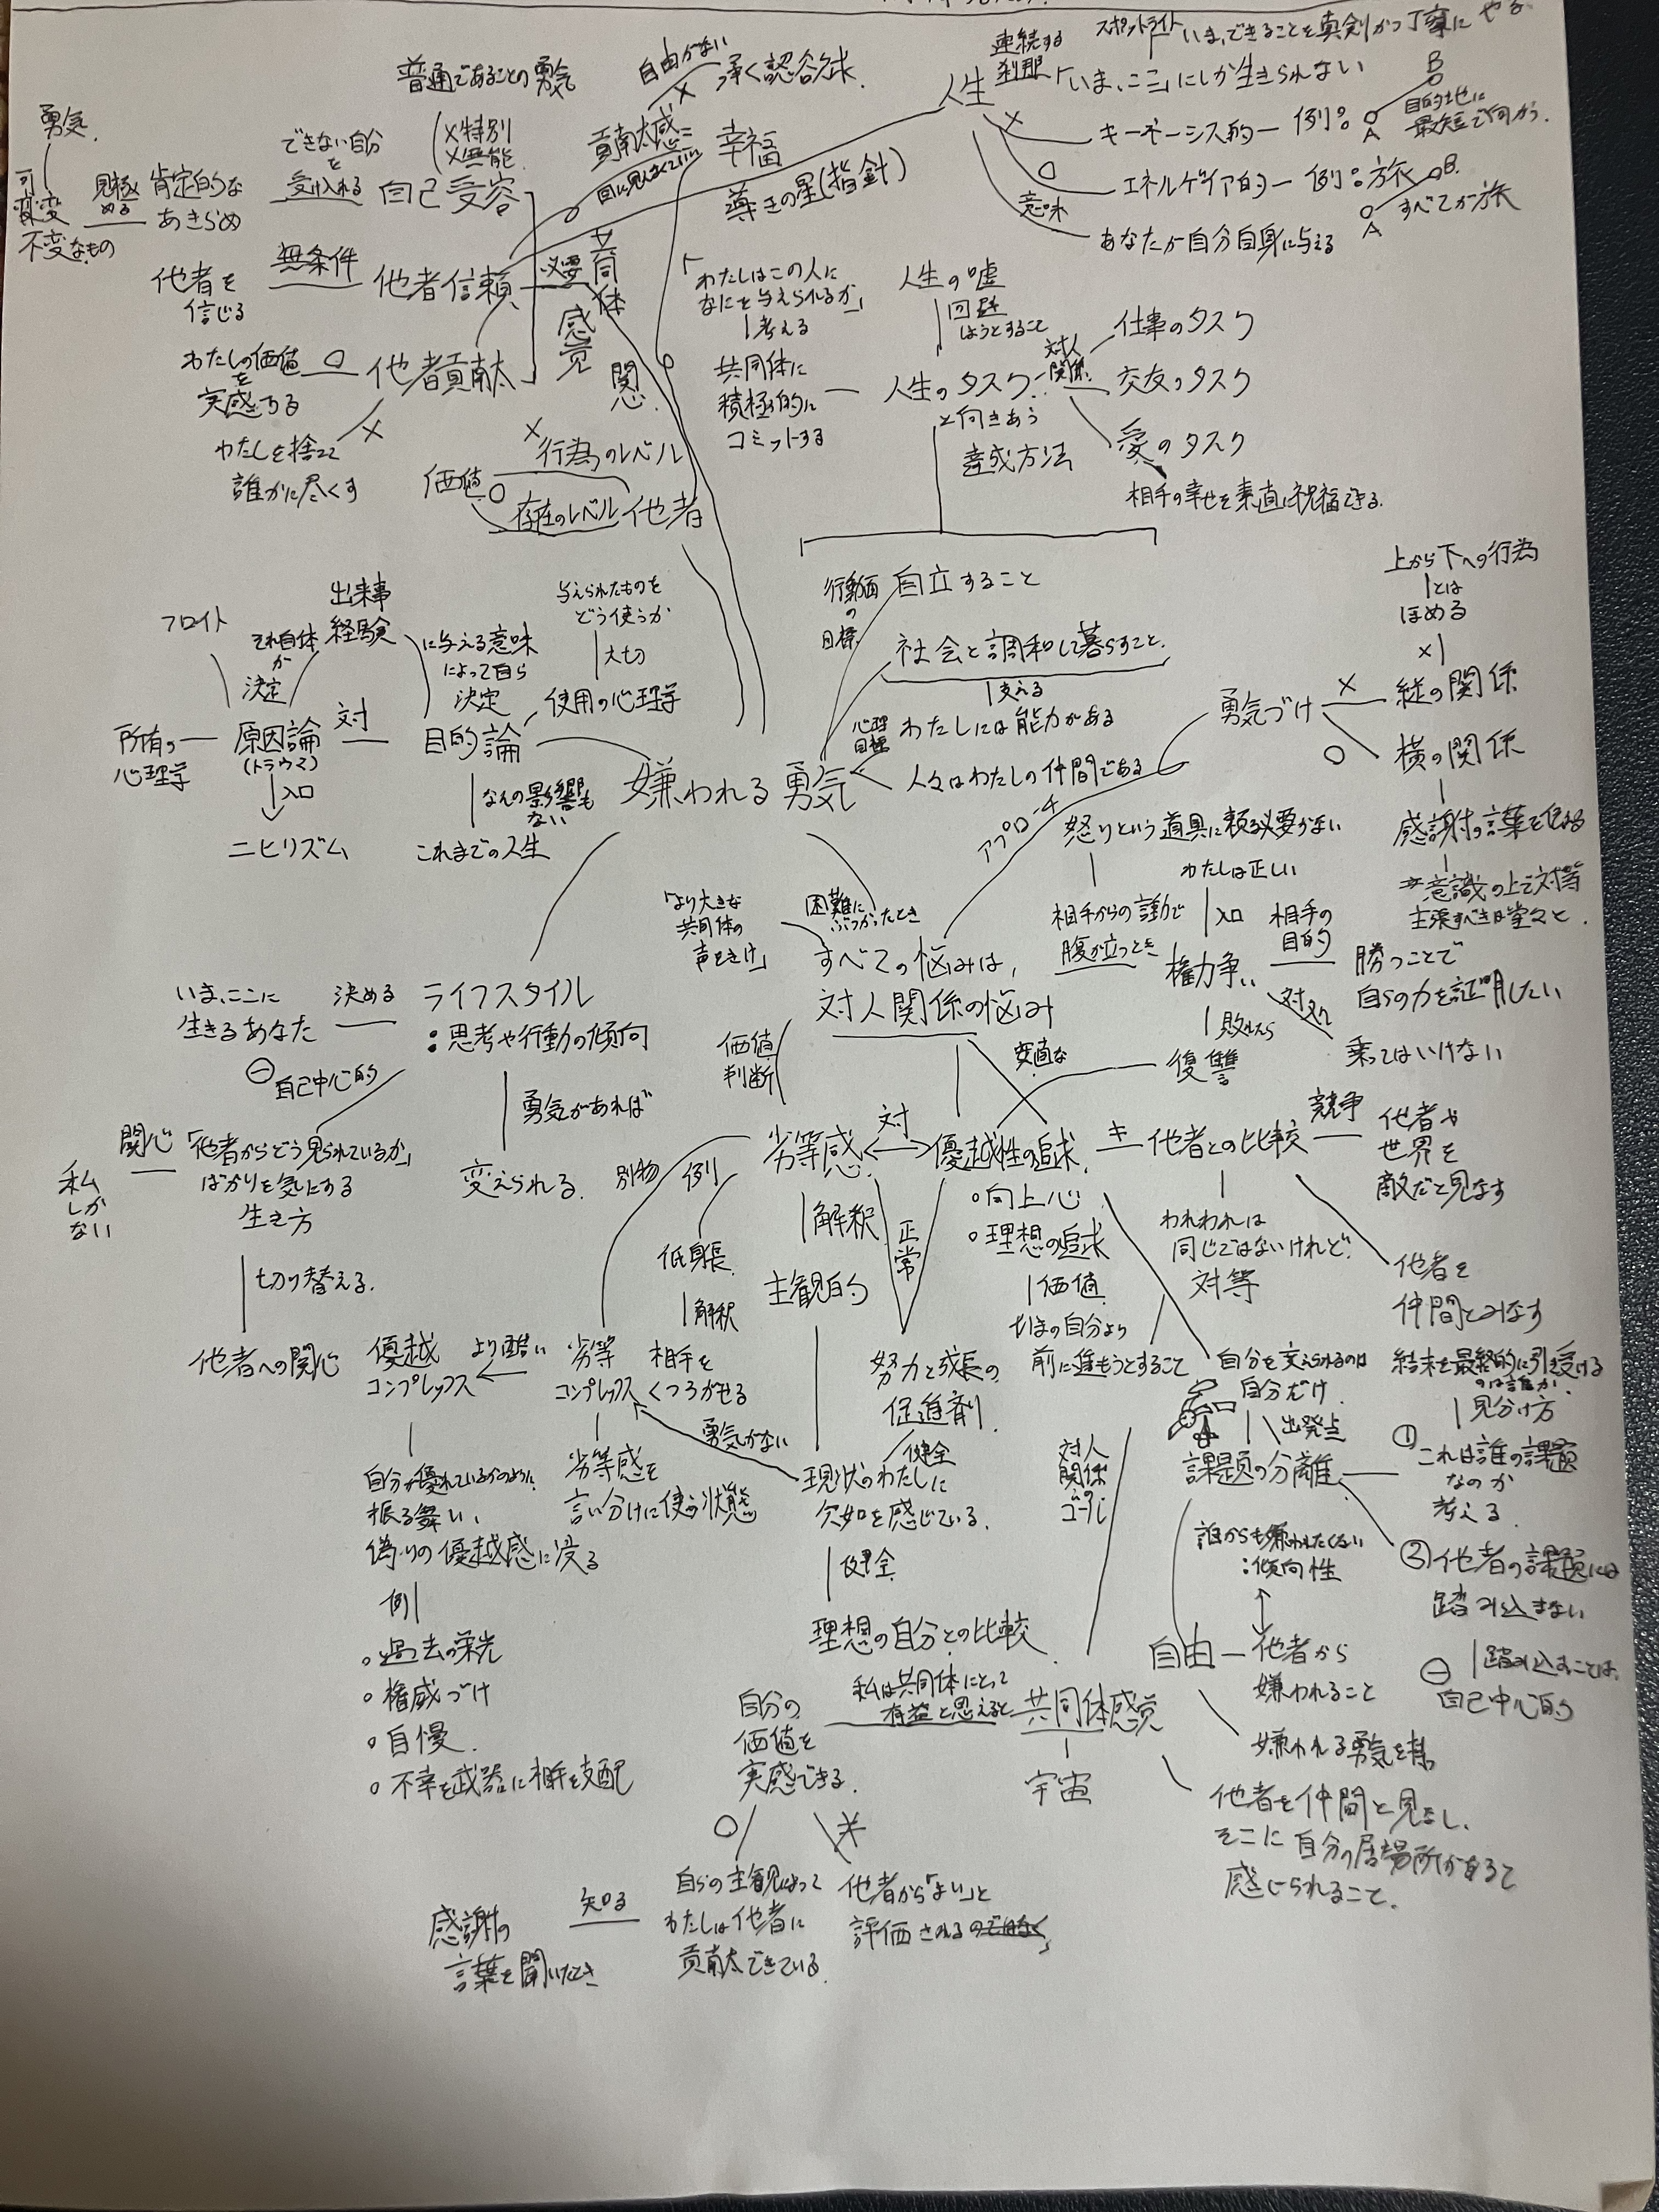 スポットライト
いま、できることを真剣かつ丁寧にやる
連続する
刹那
「いま、ここ」にしか生きられない
人生
キーネーシス的ー例。
A
B
目的地に
最短で向かう.
エネルゲイア的ー例。旅
A
B.
すべてが旅
意味
あなたが自分自身に与える
普通であることの勇気
自由がない
承く認谷欠求.
貢献感に
目に見えなくていい
幸福
導きの星(指針)
勇気.
可変
不変なもの
見極める
肯定的な
あきらめ
できない自分
を
受け入れる
×特別
×無能
自己受容
他者を
信じる
無条件
他者信頼
必要
共同体
感覚
関心.
わたしの価値
を
実感する
他者貢献
わたしを捨てて
誰かに尽くす
価値
行為のレベル
存在のレベル
他者
「わたしはこの人に
なにを与えられるか」
考える
共同体に
積極的に
コミットする
人生の嘘
回避
しようとすること
人生のタスク
と向きあう
達成方法
対人
関係
仕事のタスク
交友のタスク
愛のタスク
相手の幸せを素直に祝福できる.
行動面
の
目標
自立すること
社会と調和して暮らすこと.
支える
心理
目標
わたしには能力がある
人々はわたしの仲間である
フロイト
それ自体
が
決定
出来事
経験
に与える意味
によって自ら
決定
与えられたものを
どう使うか
大切
使用の心理学
所有の
心理学
原因論
(トラウマ)
対
目的論
入口
ニヒリズム
なんの影響も
ない
これまでの人生
嫌われる勇気
上から下への行為
とは
ほめる
勇気づけ
縦の関係
横の関係
感謝の言葉を伝える
意識の上で対等
主張すべきは堂々と.
アプローチ
怒りという道具に頼る必要がない
相手からの言動で
腹が立つとき
わたしは正しい
入口
権力争い
相手の
目的
勝つことで
自らの力を証明したい
対処
乗ってはいけない
敗れたら
復讐
「より大きな
共同体の
声をきけ」
困難に
ぶつかったとき
すべての悩みは、
対人関係の悩み
いま、ここに
生きるあなた
決める
ライフスタイル
:思考や行動の傾向
自己中心的
勇気があれば
変えられる.
私
しか
ない
関心
「他者からどう見られているか」
ばかりを気にする
生き方
切り替える.
他者への関心
価値
判断
劣等感
対
優越性の追求
他者との比較
競争
他者や
世界を
敵だと見なす
。向上心
。理想の追求
価値
いまの自分より
前に進もうとすること
われわれは
同じではないけれど
対等
他者を
仲間とみなす
別物
例
低身長
解釈
相手を
くつろがせる
解釈
主観的
正常
努力と成長の
促進剤
健全
優越
コンプレックス
より酷い
劣等
コンプレックス
勇気がない
自分が優れているかのように
振る舞い、
偽りの優越感に浸る
例
。過去の栄光
。権威づけ
。自慢.
。不幸を武器に相手を支配
劣等感を
言い分けに使う状態
現状のわたしに
欠如を感じている.
健全
理想の自分との比較
自分を変えられるのは
自分だけ
出発点
課題の分離
結末を最終的に引き受ける
のは誰か.
見分け方
①これは誰の課題
なのか
考える.
②他者の課題には
踏み込まない
踏み込むことは、
自己中心的
対人
関係
の
ゴール
誰からも嫌われたくない
:傾向性
自由ー他者から
嫌われること
嫌われる勇気を持つ
共同体感覚
宇宙
他者を仲間と見なし、
そこに自分の居場所があると
感じられること.
私は共同体にとって
有益と思えると
自分の
価値を
実感できる.
自らの主観によって
わたしは他者に
貢献できている.
他者から「よい」と
評価されるのではなく、
知る
感謝の
言葉を聞いたとき